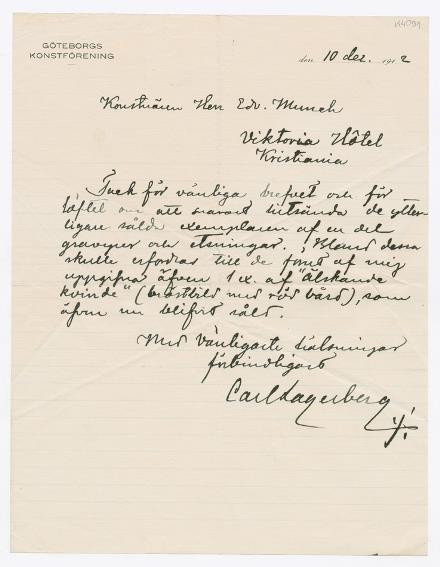 K4099
GÖTEBORGS
KONSTFÖRENING
den 10 dec. 1912
Konstnären Herr Edv. Munch
Viktoria Hôtel
Kristiania
Tack för vänliga brefvet och för
löftet om att snarast tillsända de ytter-
ligare sålda exemplaren af en del
gravyrer och etsningar. Bland dessa
skulle erfordras till de förut af mig
uppgifna äfven 1 ex. af "Älskande
kvinde" (bröstbild med röd bård), som
äfven nu blifvit såld.
Med vänligaste hälsningar
förbindligast
Carl Lagerberg